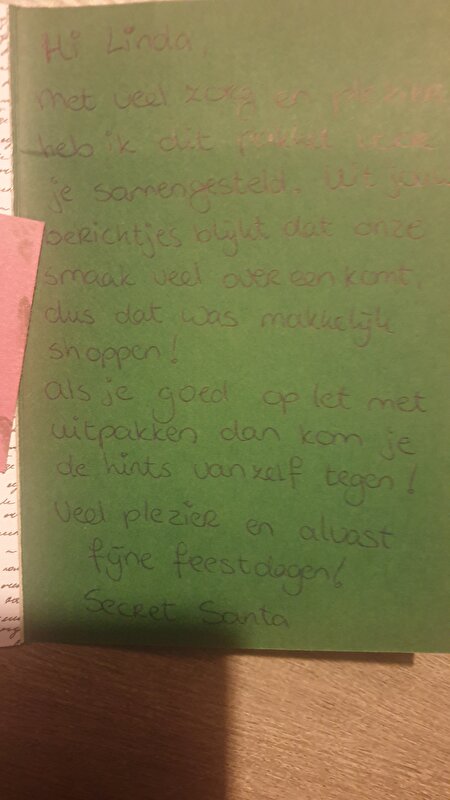 Hi Linda
Met veel zorg en plezier
heb ik dit pakket voor
je samengesteld. Uit jouw
berichtjes blijkt dat onze
smaak veel overeenkomt,
dus dat was makkelijk
shoppen!
als je goed op let met
uitpakken dan kom je
de hints vanzelf tegen!
Veel plezier en alvast
fijne feestdagen!
Secret Santa